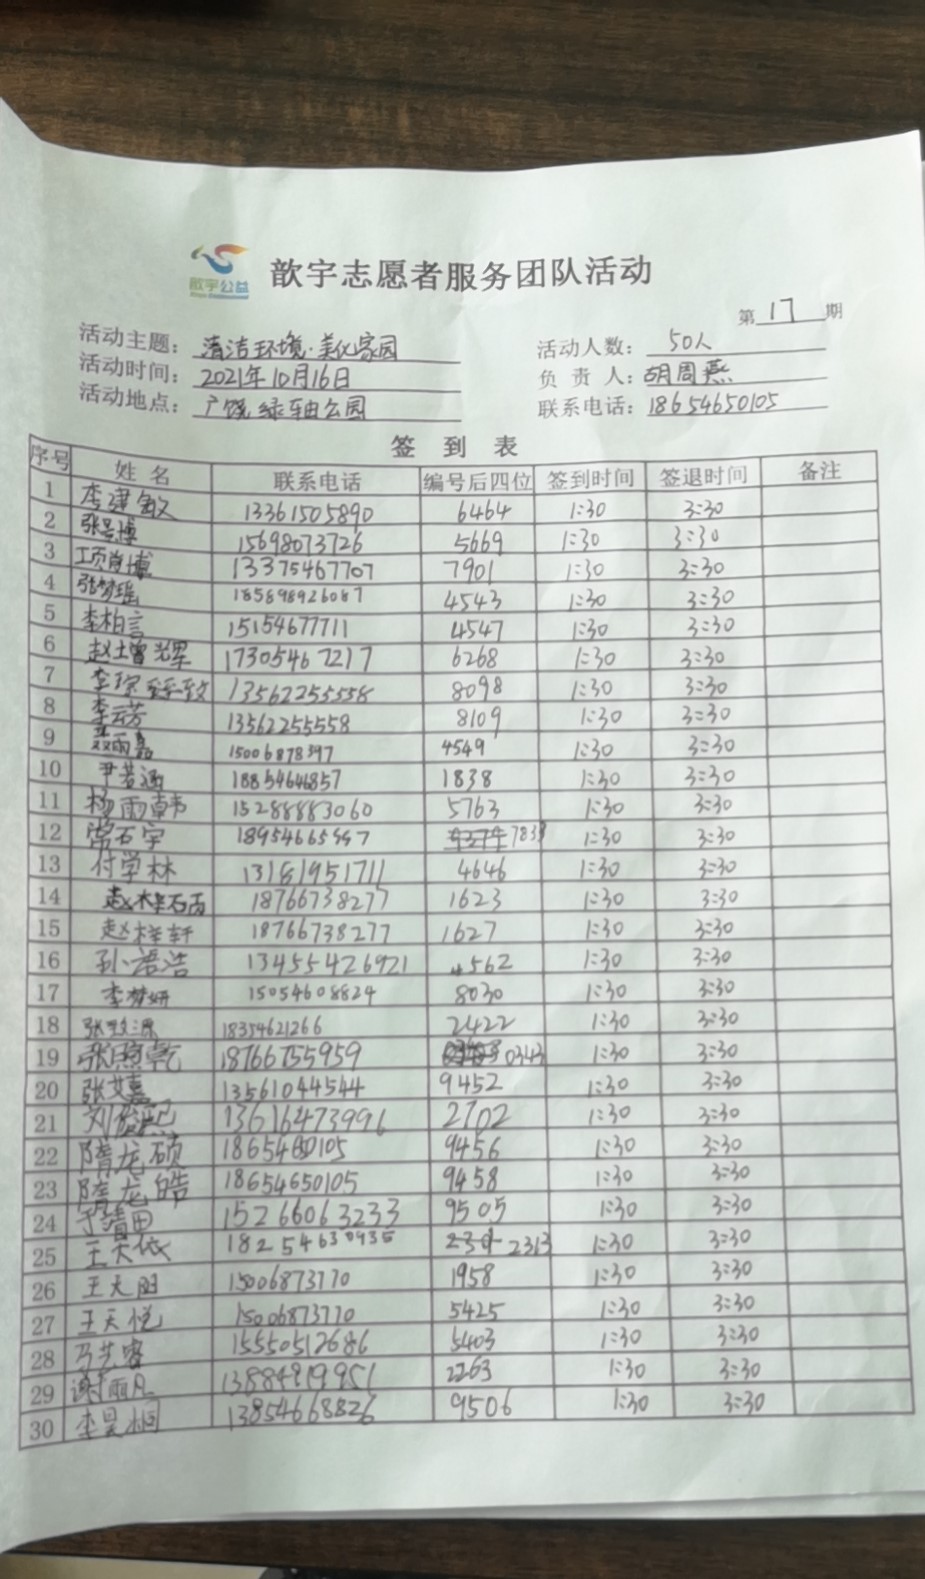 歆宇公益
歆宇志愿者服务团队活动
第17期
活动主题：清洁环境·美化家园 活动人数：50人
活动时间：2021年10月16日 负责人：胡周燕
活动地点：广饶绿轴公园 联系电话：18654650105
签到表
序号 姓名 联系电话 编号后四位 签到时间 签退时间 备注
1 李建敏 13361505890 6464 1:30 3:30
2 张昊博 15698073726 5669 1:30 3:30
3 项尚博 13375467707 7901 1:30 3:30
4 张梦瑶 185898926087 4543 1:30 3:30
5 李柏言 15154677711 4547 1:30 3:30
6 赵增辉 17305467217 6268 1:30 3:30
7 李琮 13562255558 8098 1:30 3:30
8 李云芳 13562255558 8109 1:30 3:30
9 聂雨嘉 15006878397 4549 1:30 3:30
10 尹若涵 18854646857 1838 1:30 3:30
11 杨雨韩 15288883060 5763 1:30 3:30
12 常石宇 18954665997 7838 1:30 3:30
13 付学林 13181951711 4646 1:30 3:30
14 赵 18766738277 1623 1:30 3:30
15 赵梓轩 18766738277 1627 1:30 3:30
16 孙浩 13455426921 4562 1:30 3:30
17 李梦妍 15054608824 8030 1:30 3:30
18 张源 18354621266 2422 1:30 3:30
19 张乾 18766755959 0343 1:30 3:30
20 张艾嘉 13561044544 9452 1:30 3:30
21 刘 13616473996 2702 1:30 3:30
22 隋龙硕 9456 1:30 3:30
23 隋龙皓 18654650105 9458 1:30 3:30
24 于清田 15266063233 9505 1:30 3:30
25 王天依 18254630935 2313 1:30 3:30
26 王天阳 15006873770 1958 1:30 3:30
27 王天悦 15006873770 5425 1:30 3:30
28 马艺睿 15550512686 5403 1:30 3:30
29 谢雨凡 13884919951 2263 1:30 3:30
30 李昊桐 13854668826 9506 1:30 3:30